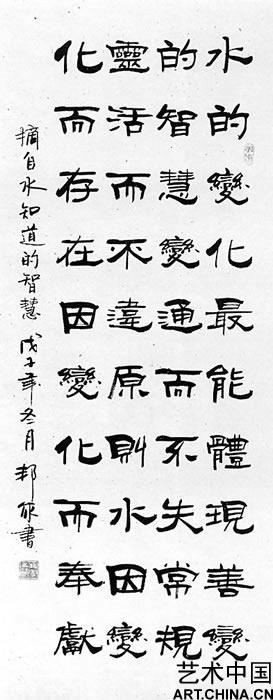 水的變化最能體現善變
的智慧變通而不失常規
靈活而不違原則水因變
化而存在因變化而奉獻
摘自水知道的智慧 戊子年冬月 邦 書
艺术中国
ART.CHINA.CN